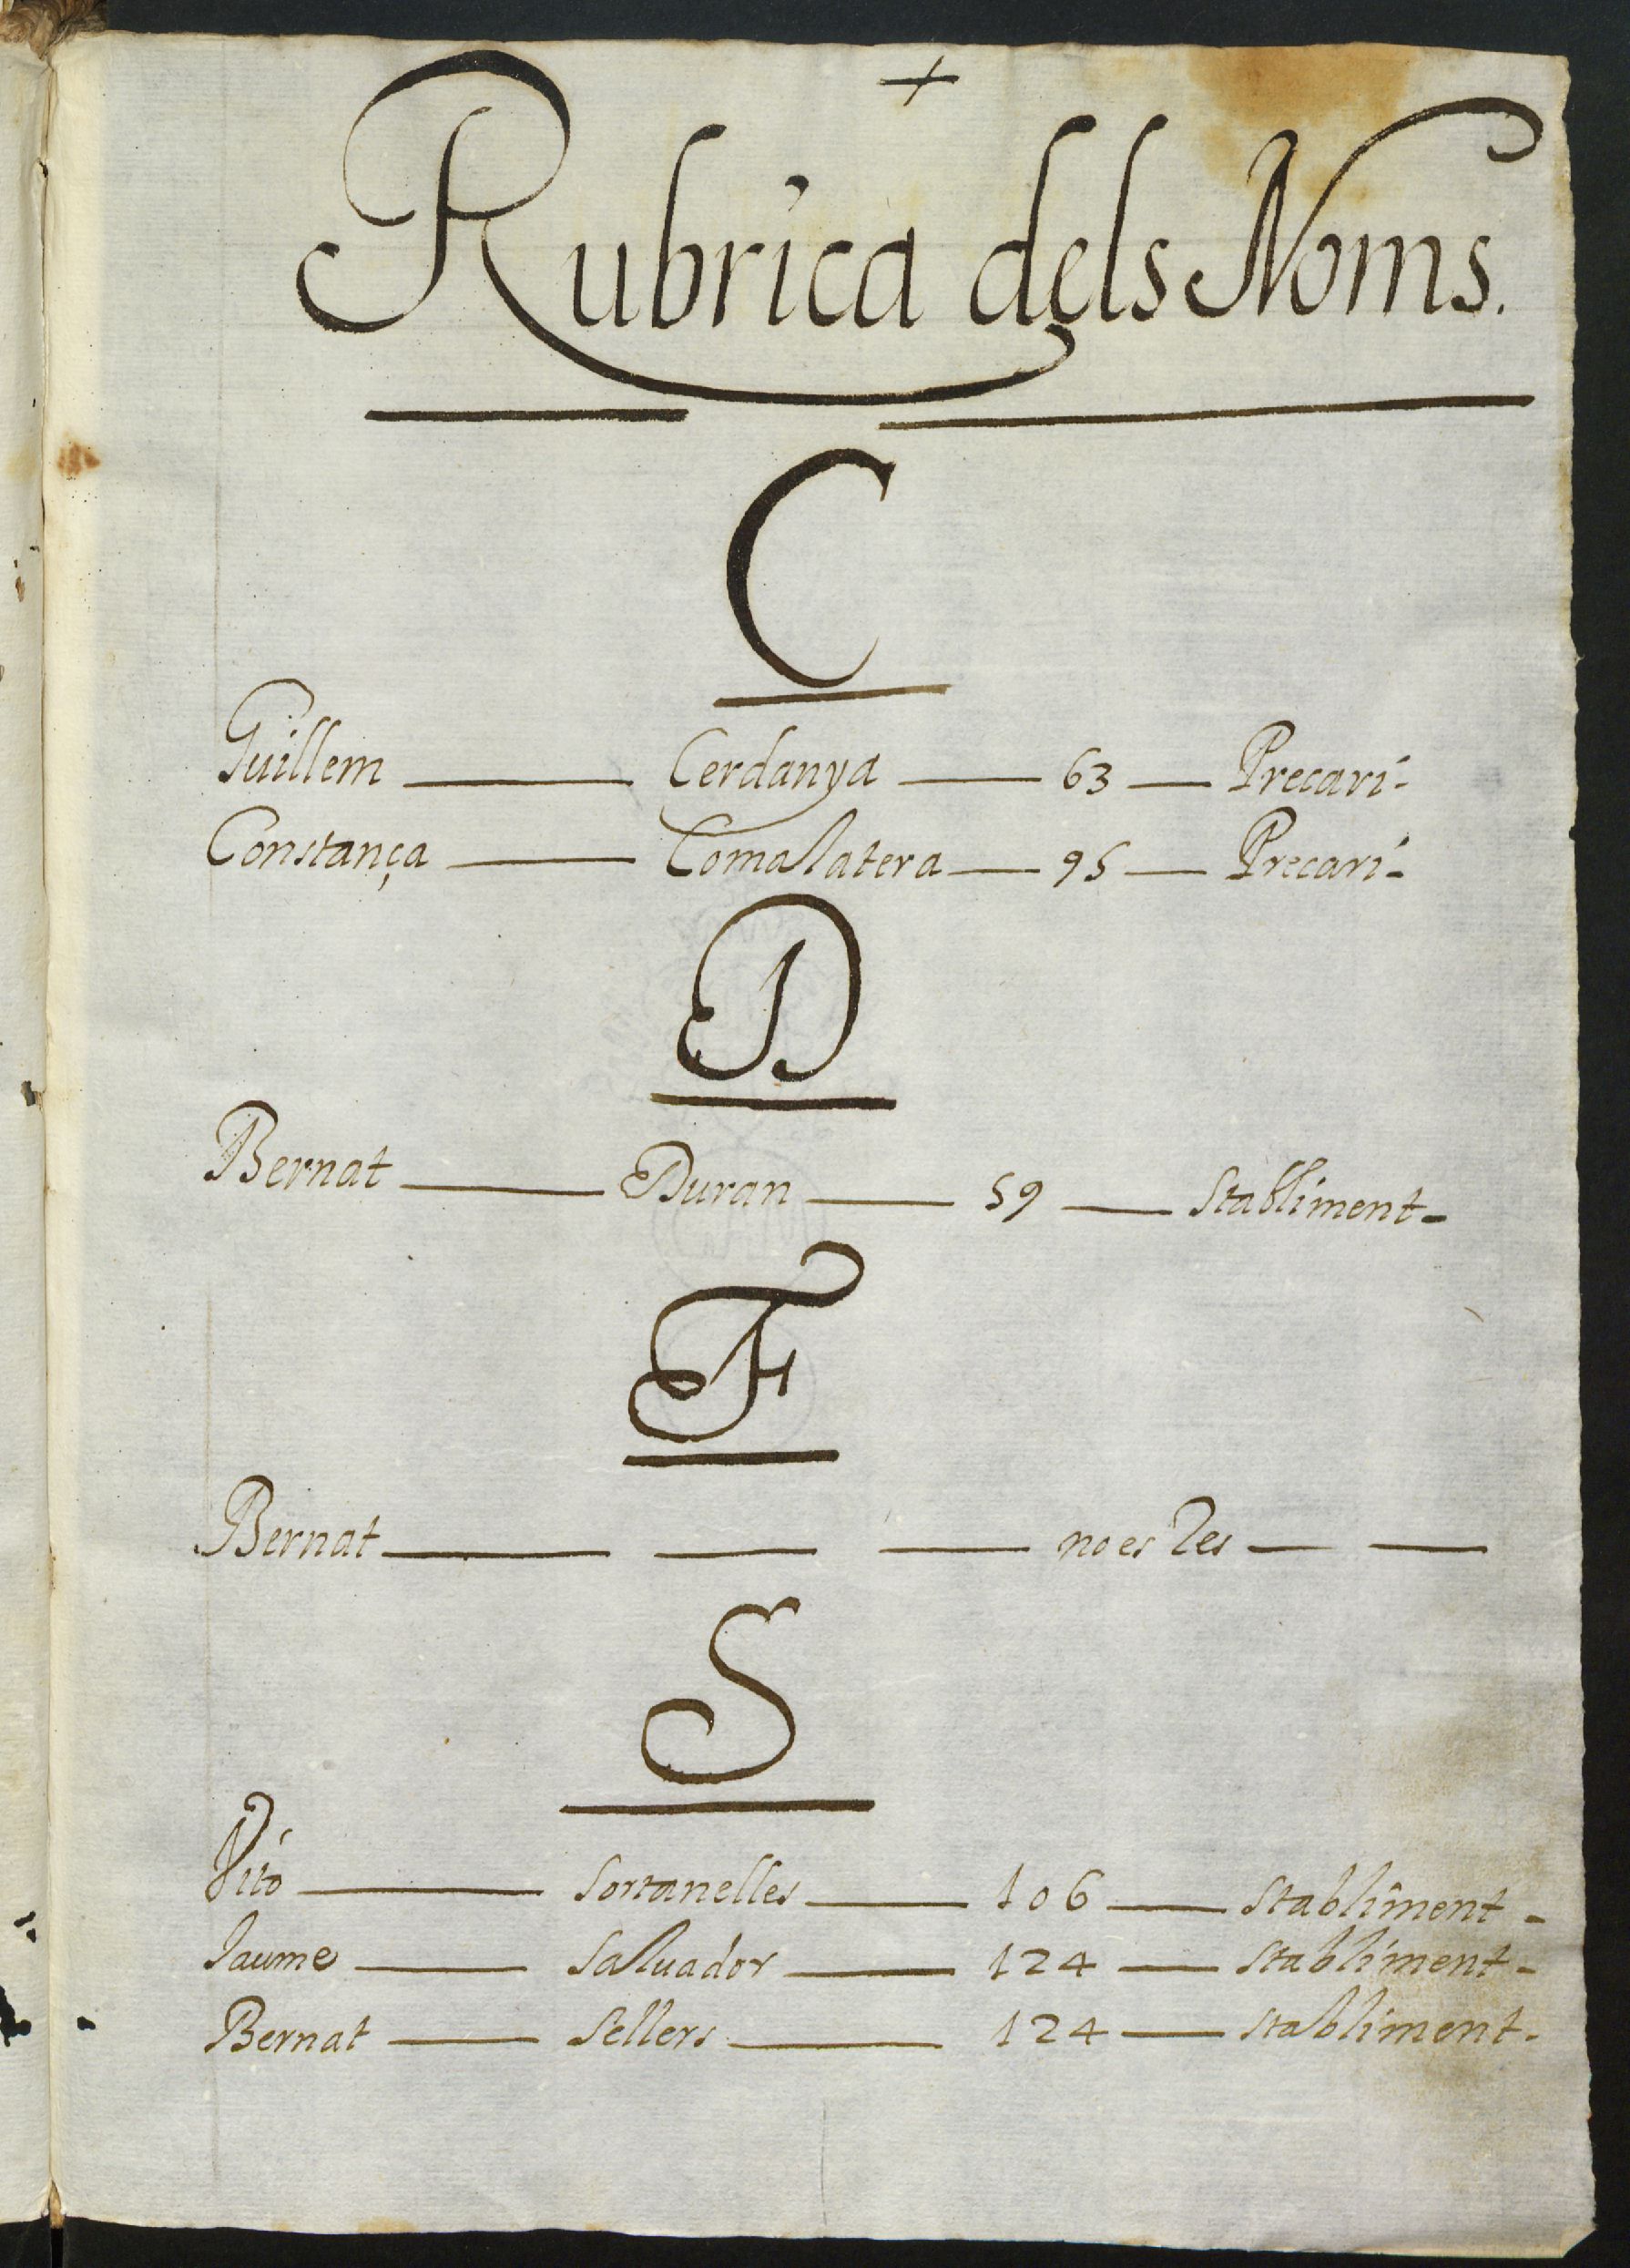 +
Rubrica dels Noms.
C
Guillem — Cerdanya — 63 — Precari-
Constança — Comallatera — 95 — Precari-
D
Bernat — Duran — 59 — Stabliment-
F
Bernat — — — no es Res — —
S
Vito — Sortanelles — 106 — Stabliment-
Jaume — Salluador — 124 — Stabliment-
Bernat — Sellers — 124 — Stabliment-